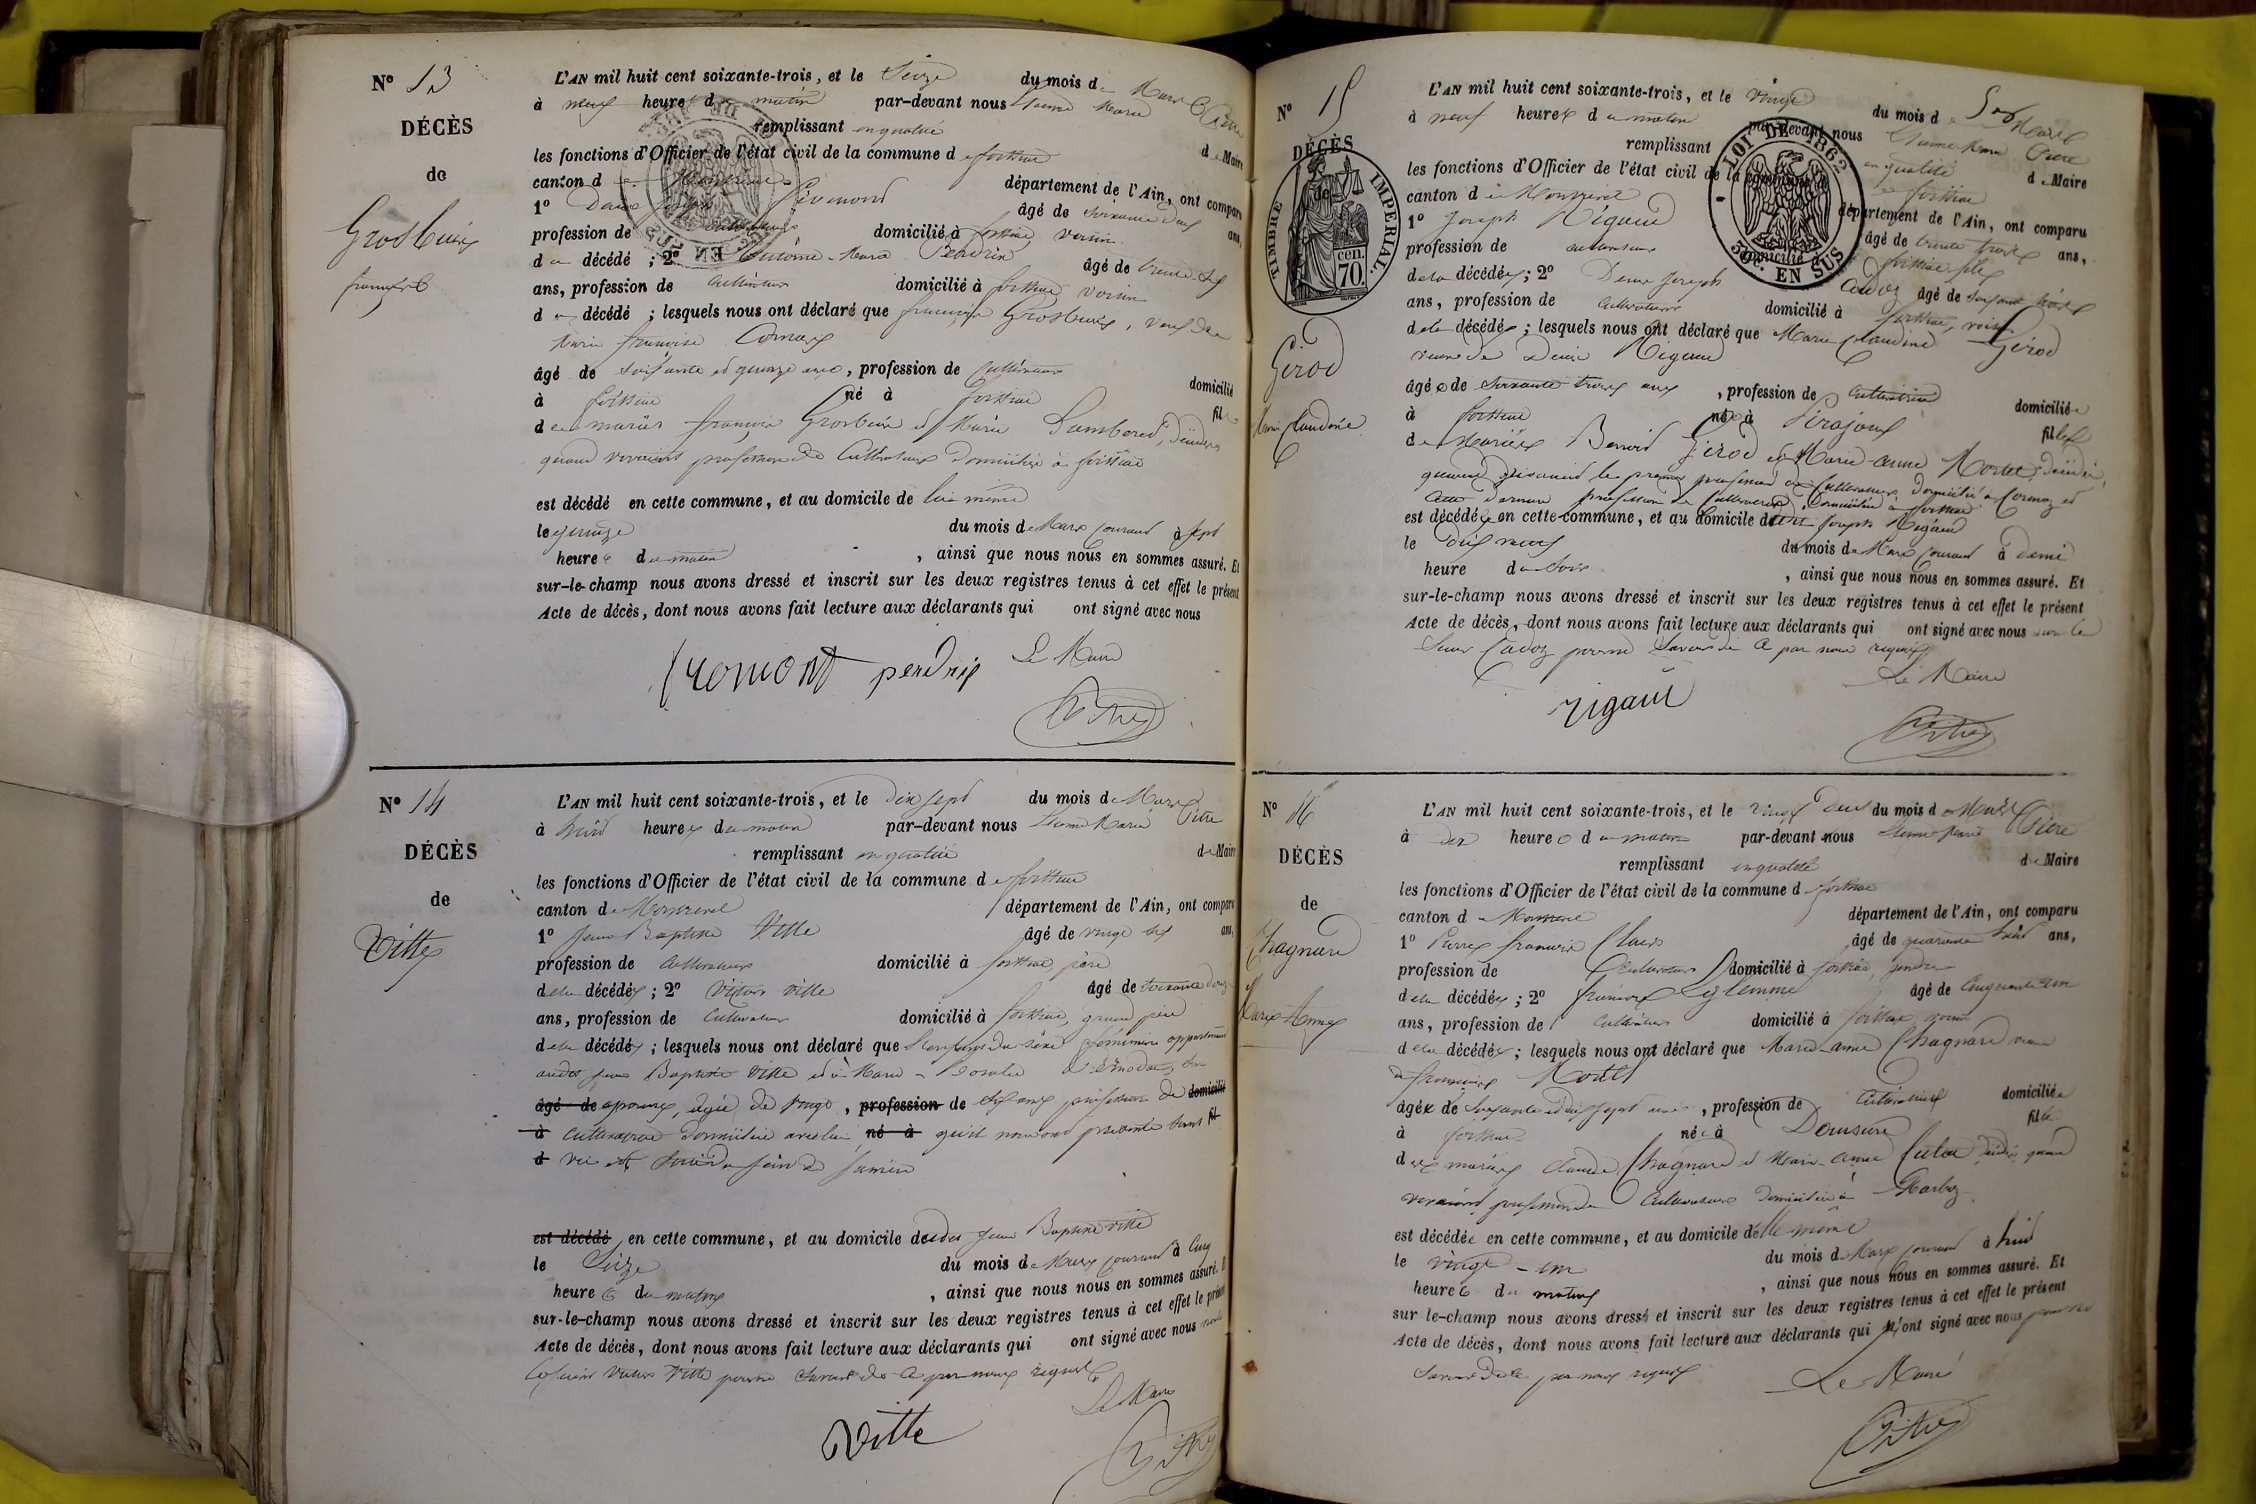 N° 13
DÉCÈS
de
Grosbuis
françois
L'AN mil huit cent soixante-trois, et le Seize du mois de Mars
à neuf heures du matin par-devant nous Etienne Marie Pitre
remplissant en qualité de Maire
les fonctions d'Officier de l'état civil de la commune de foissiat
canton de Montrevel département de l'Ain, ont comparu
1° Denis Joseph âgé de soixante deux ans,
profession de cultivateur domicilié à foissiat, voisin
du décédé ; 2° Marie Perdrix âgé de trente six
ans, profession de cultivateur domicilié à foissiat voisin
du décédé ; lesquels nous ont déclaré que françois Grosbuis, veuf de
Marie françoise
âgé de soixante et quinze ans, profession de cultivateur domicilié
à foissiat né à foissiat fils
de mariés françois Grosbuis et Marie décédés
quand vivaient profession de cultivateurs domiciliés à foissiat
est décédé en cette commune, et au domicile de lui même
le quinze du mois de Mars courant à sept
heures du matin , ainsi que nous nous en sommes assuré. Et
sur-le-champ nous avons dressé et inscrit sur les deux registres tenus à cet effet le présent
Acte de décès, dont nous avons fait lecture aux déclarants qui ont signé avec nous
perdrix Le Maire
Pitre
N° 14
DÉCÈS
de
Vitte
L'AN mil huit cent soixante-trois, et le dix sept du mois de Mars
à huit heures du matin par-devant nous Etienne Marie Pitre
remplissant en qualité de Maire
les fonctions d'Officier de l'état civil de la commune de foissiat
canton de Montrevel département de l'Ain, ont comparu
1° Jean Baptiste Vitte âgé de vingt six ans,
profession de cultivateur domicilié à foissiat, père
de la décédée ; 2° Victor Vitte âgé de soixante douze
ans, profession de cultivateur domicilié à foissiat, grand père
de la décédée ; lesquels nous ont déclaré que l'enfant du sexe féminin appartenant
audit Jean Baptiste Vitte et à Marie Rosalie son
âgé de épouse, âgée de vingt, profession de six ans profession de domicilié
à cultivatrice domiciliée avec lui né à qu'il nous ont présenté sans fil
d vie est sorti du sein de sa mère
est décédé en cette commune, et au domicile dudit Jean Baptiste Vitte
le Seize du mois de Mars courant à cinq
heures du matin , ainsi que nous nous en sommes assuré. E
sur-le-champ nous avons dressé et inscrit sur les deux registres tenus à cet effet le présent
Acte de décès, dont nous avons fait lecture aux déclarants qui ont signé avec nous non
le sieur Victor Vitte pour ne savoir de ce par nous requis
Le Maire
Vitte
Pitre
N° 15
DÉCÈS
de
TIMBRE IMPÉRIAL.
70.
cen.
Girod
Marie Claudine
LOI DE 1862
50c. EN SUS
L'AN mil huit cent soixante-trois, et le vingt du mois de Mars
à neuf heures du matin par-devant nous Etienne Marie Pitre
remplissant en qualité de Maire
les fonctions d'Officier de l'état civil de la commune de foissiat
canton de Montrevel département de l'Ain, ont comparu
1° Joseph Rigaud âgé de trente trois ans,
profession de cultivateur domicilié à foissiat fils
de la décédée ; 2° Denis Joseph Cadoz âgé de soixante
ans, profession de cultivateur domicilié à foissiat, voisin
de la décédée ; lesquels nous ont déclaré que Marie Claudine Girod
veuve de Denis Rigaud
âgée de soixante trois ans, profession de cultivatrice domiciliée
à foissiat née à Pirajoux fille
de Mariés Benoit Girod et Marie-anne Mortet, décédés,
quand vivaient le premier profession de cultivateur, domicilié à Cormoz et
cette dernière profession de cultivatrice, domiciliée à foissiat
est décédée en cette commune, et au domicile dudit Joseph Rigaud
le dix neuf du mois de Mars courant à demi
heure du soir , ainsi que nous nous en sommes assuré. Et
sur-le-champ nous avons dressé et inscrit sur les deux registres tenus à cet effet le présent
Acte de décès, dont nous avons fait lecture aux déclarants qui ont signé avec nous non le
sieur Cadoz pour ne savoir de ce par nous requis
Le Maire
rigaud
Pitre
N° 16
DÉCÈS
de
Chagnard
Marie-Anne
L'AN mil huit cent soixante-trois, et le vingt deux du mois de Mars
à dix heures du matin par-devant nous Etienne Marie Pitre
remplissant en qualité de Maire
les fonctions d'Officier de l'état civil de la commune de foissiat
canton de Montrevel département de l'Ain, ont comparu
1° Pierre françois âgé de quarante huit ans,
profession de cultivateur domicilié à foissiat, gendre
de la décédée ; 2° françois âgé de cinquante un
ans, profession de cultivateur domicilié à foissiat, voisin
de la décédée ; lesquels nous ont déclaré que Marie-anne Chagnard veuve
de françois Mortet
âgée de soixante et dix sept ans, profession de cultivatrice domiciliée
à foissiat née à Domsure fille
des mariés Claude Chagnard et Marie-anne décédés quand
vivaient profession de cultivateurs domiciliés à Marboz
est décédée en cette commune, et au domicile d'elle même
le vingt-un du mois de Mars courant à huit
heures du matin , ainsi que nous nous en sommes assuré. Et
sur le-champ nous avons dressé et inscrit sur les deux registres tenus à cet effet le présent
Acte de décès, dont nous avons fait lecture aux déclarants qui n'ont signé avec nous pour ne
savoir de ce par nous requis
Le Maire
Pitre